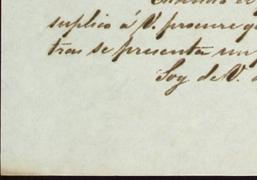 suplico á V. procure
tras se presenta un
Soy de V.